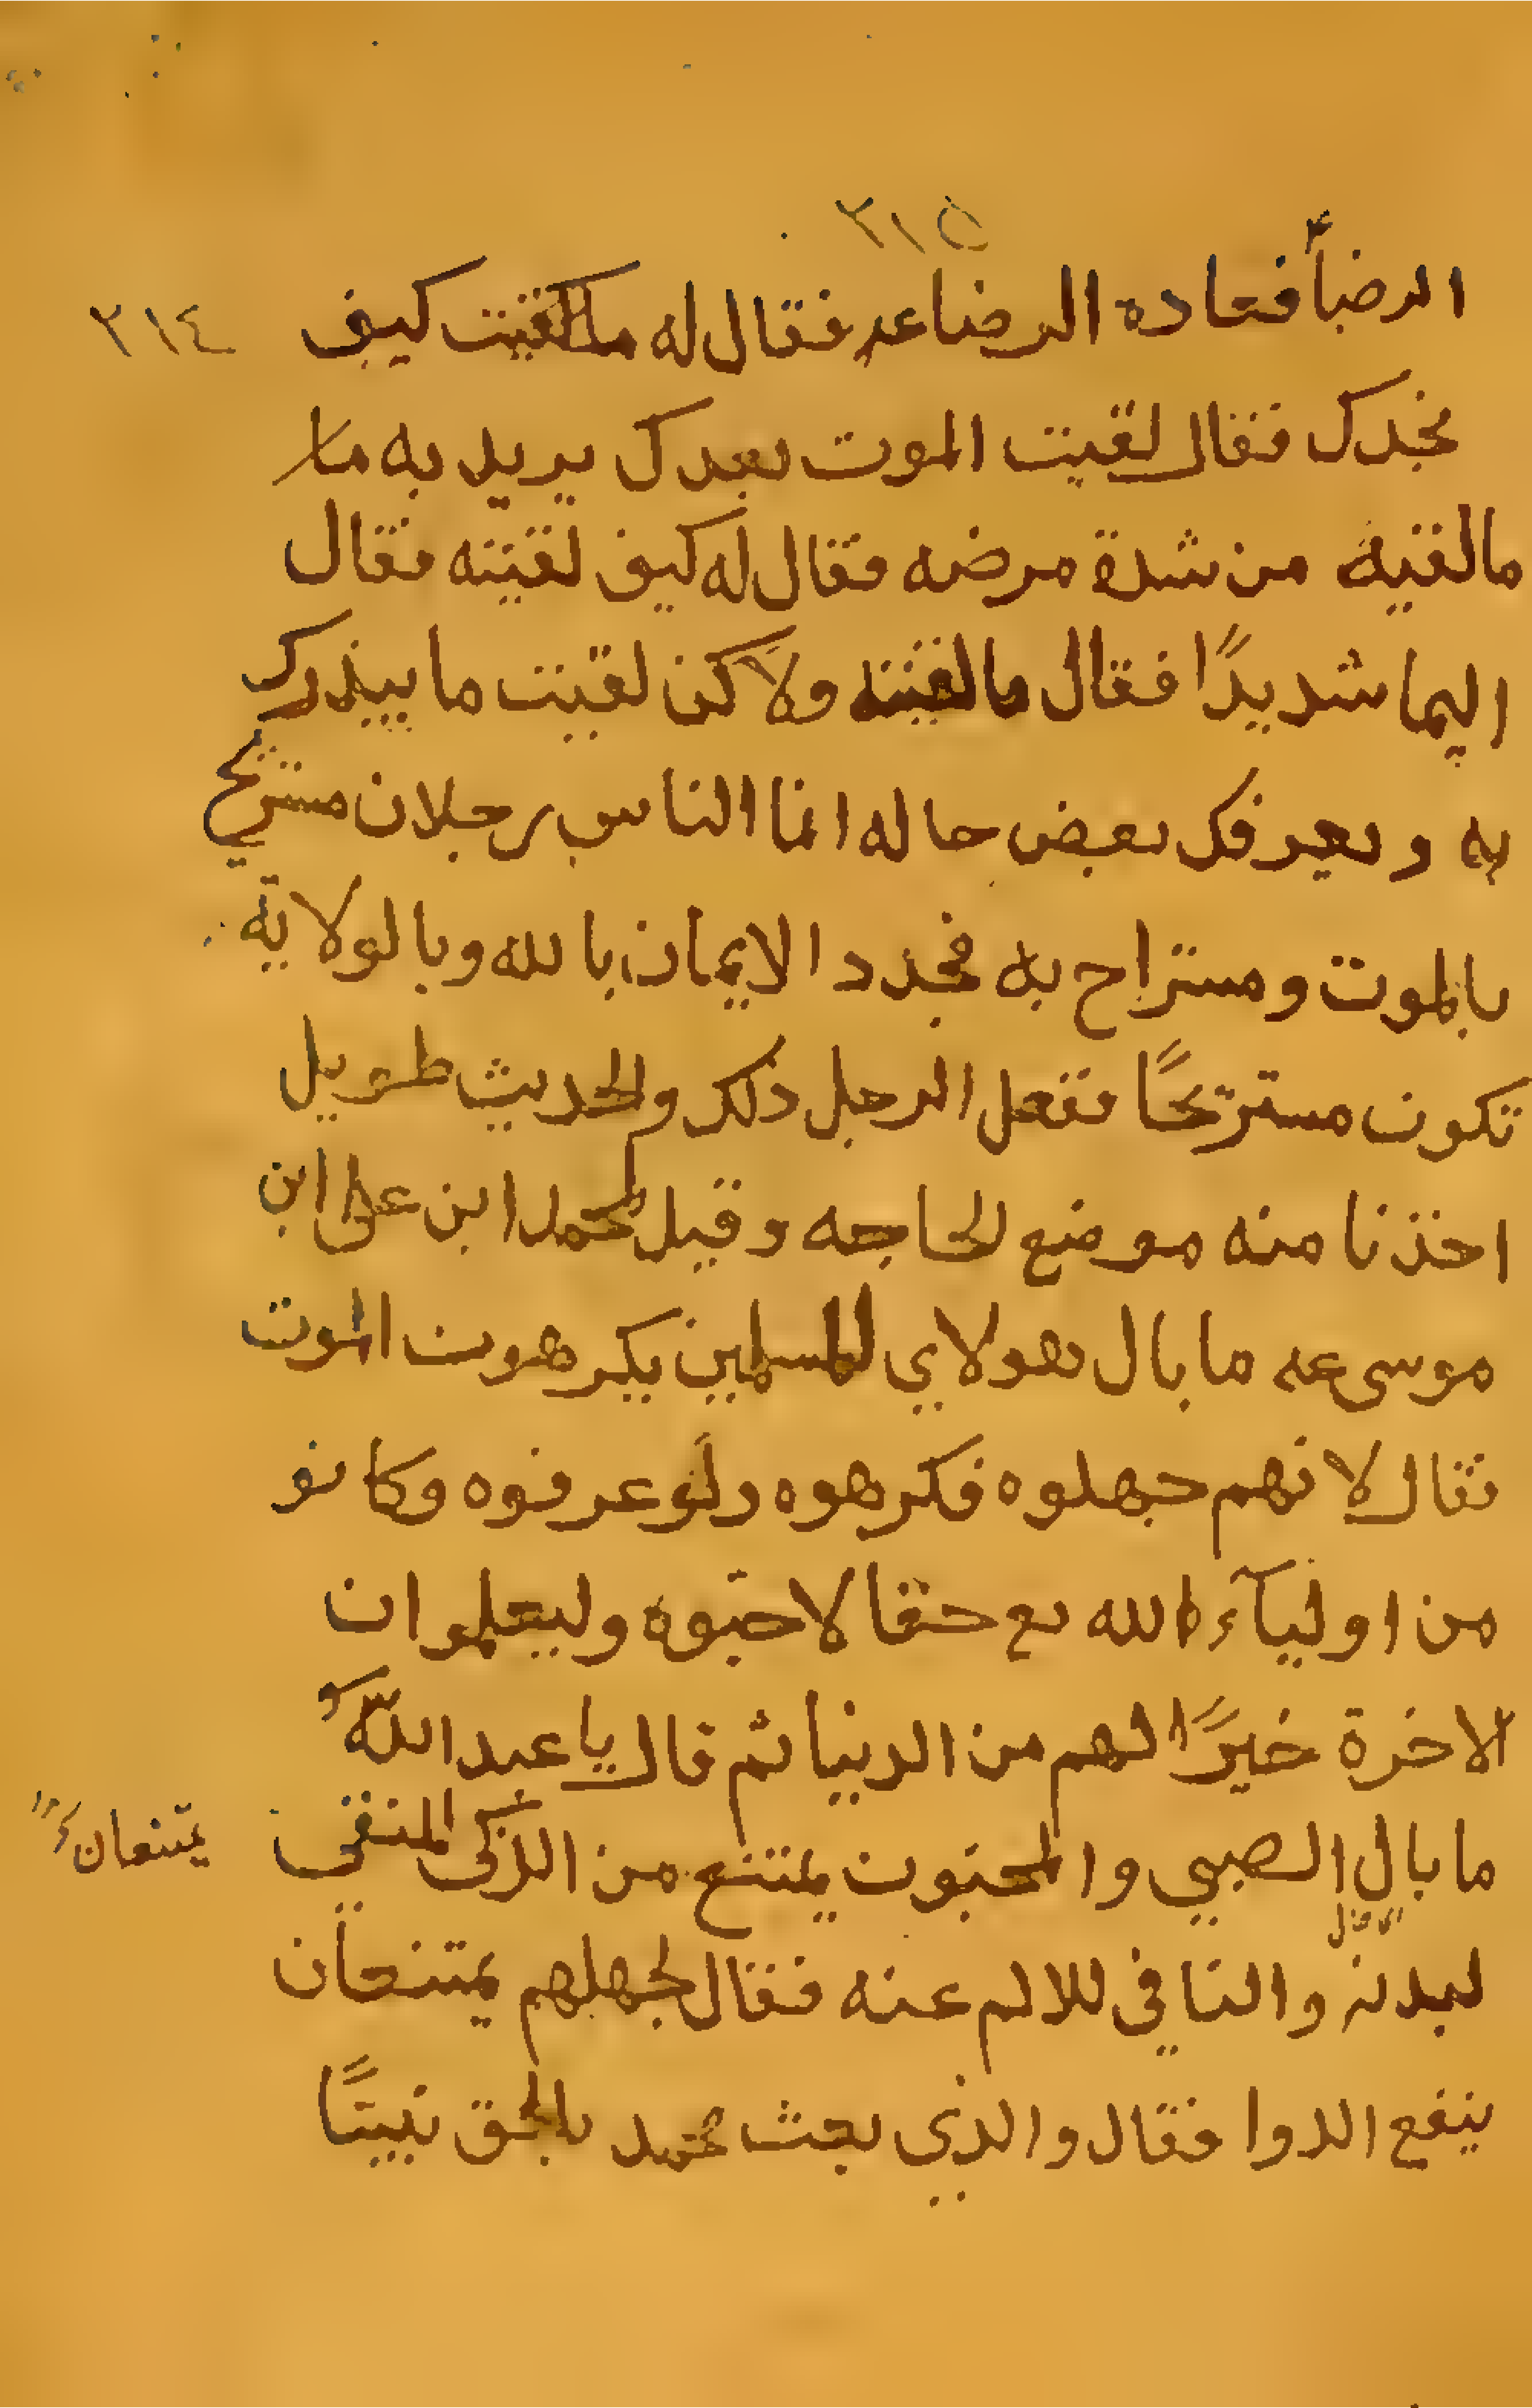 ٣١٥
الرضا فعاده الرضا عه فقال له ما لقيت كيف
٣١٤
تجدك فقال لقيت الموت بعدك يريد به ما
ما لقيه من شدة مرضه فقال له كيف لقيته فقال
اليما شديدًا فقال ما لقيته ولاكن لقيت ما يبنذرك
به ويعرفك بعض حاله انما الناس رجلان مستريح
بالموت ومستراح به فجدد الايمان بالله وبالولاية
تكون مستريحًا ففعل الرجل ذلك والحديث طويل
اخذنا منه موضع الحاجه وقيل لمحمد ابن على ابن
موسى عه ما بال هولاي المسلمين يكرهون الموت
فقال لانهم جهلوه فكرهوه ولو عرفوه وكانو
من اوليآء الله تع حقا لاحبوه وليعلموا ان
الاخرة خيرًا لهم من الدنيا ثم قال يا عبد الله
ما بال الصبي والمجنون يمتنع من الذكى المنقي
يمتنعان
لبدنه والنافي للالم عنه فقال لجهلهم يمتنعان
ينفع الدوا فقال والذي بعث محمد بالحق نبيتًا